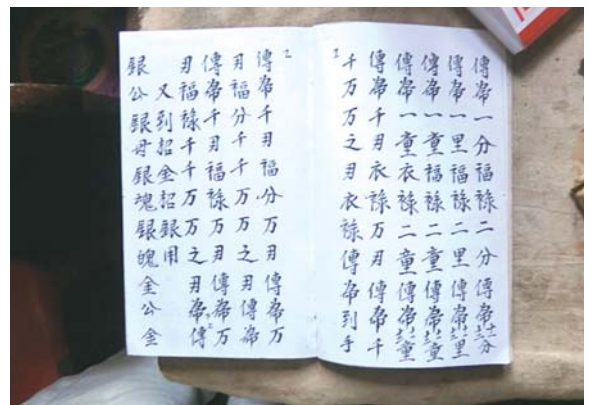 1
傳帋一分福祿二分傳帋分
傳帋一里福祿二里傳帋里
傳帋一童福祿二童傳帋童
傳帋一童衣祿二童傳帋童
傳帋千月衣祿万月傳帋千
千万万之月衣祿傳帋到手
2
傳帋千月福分万月傳帋万
月福分千千万万之月傳帋
傳帋千月福祿万月傳帋万
月福祿千千万万之月帋傳
又到招金招銀用
銀公銀母銀魂銀魄金公金